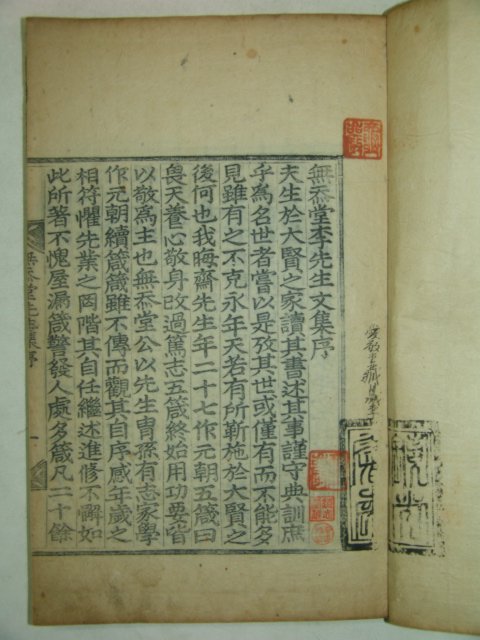 無忝堂李先生文集序
夫生於大賢之家讀其書述其事謹守典訓庶
乎為名世者嘗以是攷其世或僅有而不能多
見雖有之不克永年天若有所靳施於大賢之
後何也我晦齋先生年二十七作元朝五箴曰
畏天養心敬身改過篤志五箴終始用功要旨
以敬為主也無忝堂公以先生胄孫有志家學
作元朝續箴箴雖不傳而觀其自序感年歲之
相符懼先業之罔階其自任繼述進修不懈如
此所著不愧屋漏箴警發人處多箴凡二十餘
無忝堂先生集序
一